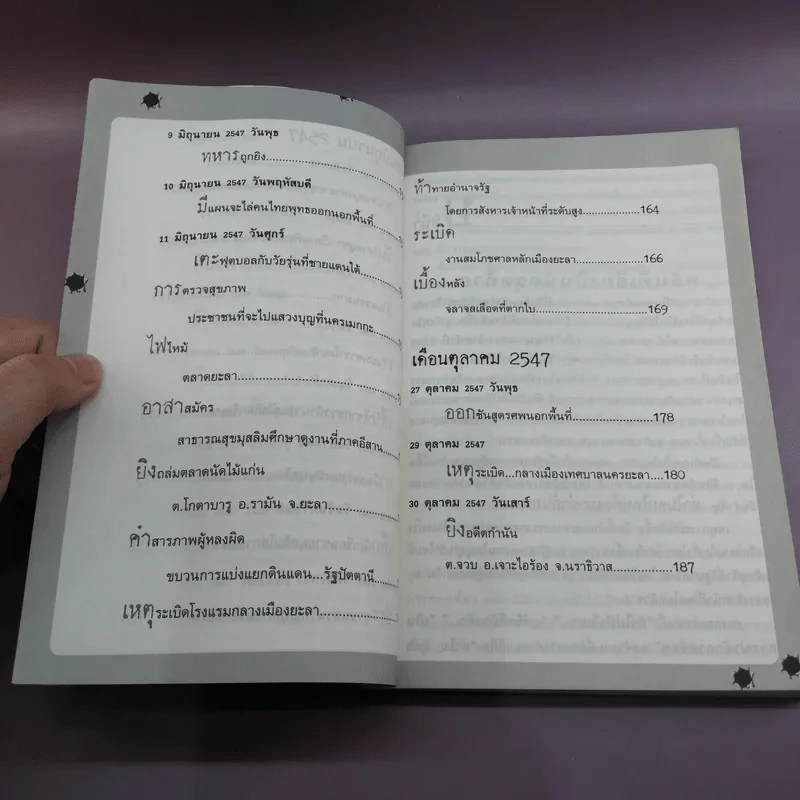 9 มิถุนายน 2547 วันพุธ
ทหารถูกยิง
10 มิถุนายน 2547 วันพฤหัสบดี
มีแผนจะไล่คนไทยพุทธออกนอกพื้นที่
11 มิถุนายน 2547 วันศุกร์
เตะฟุตบอลกับวัยรุ่นที่ชายแดนใต้
การตรวจสุขภาพ
ประชาชนที่จะไปแสวงบุญที่นครเมกกะ
ไฟไหม้
ตลาดยะลา
อาสาสมัคร
สาธารณสุขมุสลิมศึกษาดูงานที่ภาคอีสาน
ยิงถล่มตลาดนัดไม้แก่น
ต.โกตาบารู อ.รามัน จ.ยะลา
คำสารภาพผู้หลงผิด
ขบวนการแบ่งแยกดินแดน...รัฐปัตตานี
เหตุระเบิดโรงแรมกลางเมืองยะลา
ท้าทายอำนาจรัฐ
โดยการสังหารเจ้าหน้าที่ระดับสูง 164
ระเบิด
งานสมโภชศาลหลักเมืองยะลา 166
เบื้องหลัง
จลาจลเลือดที่ตากใบ 169
เดือนตุลาคม 2547
27 ตุลาคม 2547 วันพุธ
ออกชันสูตรศพนอกพื้นที่ 178
29 ตุลาคม 2547
เหตุระเบิด...กลางเมืองเทศบาลนครยะลา 180
30 ตุลาคม 2547 วันเสาร์
ยิงอดีตกำนัน
ต.จวบ อ.เจาะไอร้อง จ.นราธิวาส 187